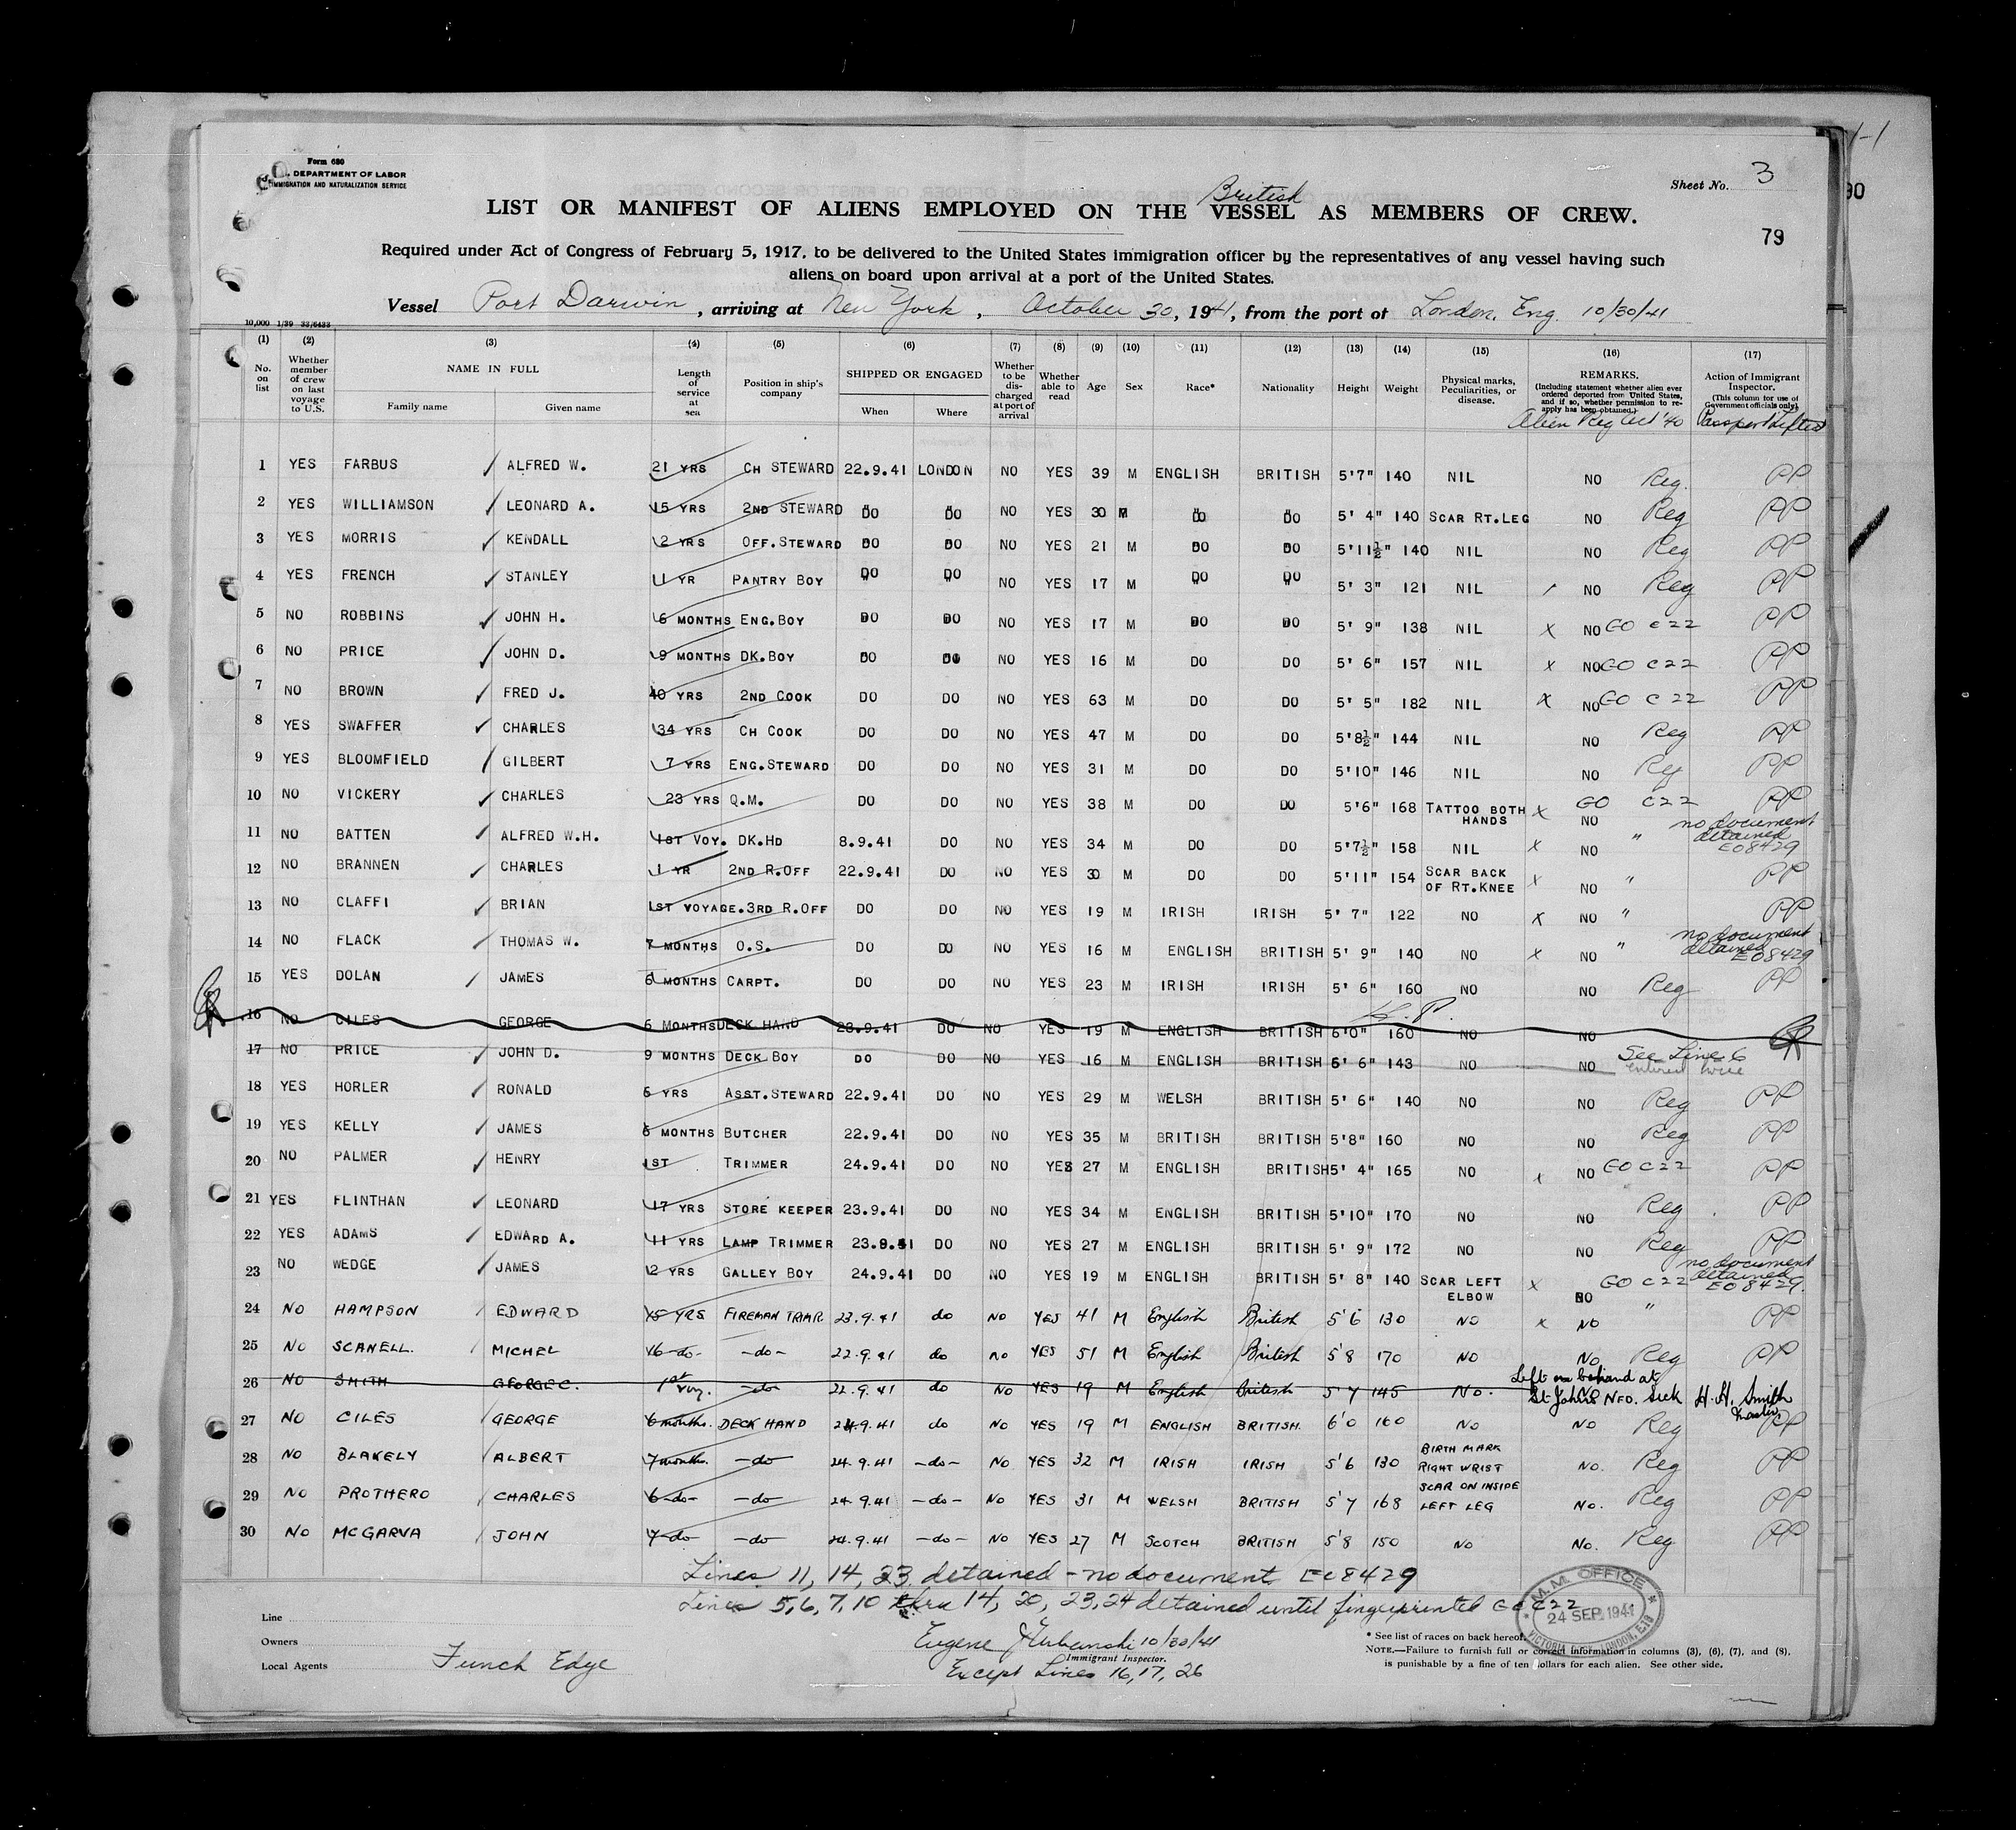 1-1
Form 680
DEPARTMENT OF LABOR
IMMIGRATION AND NATURALIZATION SERVICE
Sheet No. 3
90
British
LIST OR MANIFEST OF ALIENS EMPLOYED ON THE VESSEL AS MEMBERS OF CREW.
79
Required under Act of Congress of February 5, 1917, to be delivered to the United States immigration officer by the representatives of any vessel having such
aliens on board upon arrival at a port of the United States.
Vessel Port Darwin, arriving at New York, October 30, 1941, from the port of London, Eng. 10/30/41
10,000 1/39 33/6433
(1) (2) (3) (4) (5) (6) (7) (8) (9) (10) (11) (12) (13) (14) (15) (16) (17)
No. on list
Whether member of crew on last voyage to U.S.
NAME IN FULL
Family name Given name
Length of service at sea
Position in ship's company
SHIPPED OR ENGAGED
When Where
Whether to be discharged at port of arrival
Whether able to read
Age Sex Race* Nationality Height Weight
Physical marks, Peculiarities, or disease.
REMARKS.
(Including statement whether alien ever ordered deported from United States, and if so, whether permission to reapply has been obtained.)
Action of Immigrant Inspector.
(This column for use of Government officials only)
Alien Reg Act '40 Passport Lifted
1 YES FARBUS ALFRED W. 21 YRS CH STEWARD 22.9.41 LONDON NO YES 39 M ENGLISH BRITISH 5'7" 140 NIL NO Reg. PP
2 YES WILLIAMSON LEONARD A. 15 YRS 2ND STEWARD DO DO NO YES 30 M DO DO 5' 4" 140 SCAR RT.LEG NO Reg PP
3 YES MORRIS KENDALL 2 YRS OFF.STEWARD DO DO NO YES 21 M DO DO 5'11½" 140 NIL NO Reg PP
4 YES FRENCH STANLEY 1 YR PANTRY BOY DO DO NO YES 17 M DO DO 5' 3" 121 NIL NO Reg PP
5 NO ROBBINS JOHN H. 6 MONTHS ENG.BOY DO DO NO YES 17 M DO DO 5' 9" 138 NIL X NO GO C22 PP
6 NO PRICE JOHN D. 9 MONTHS DK.BOY DO DO NO YES 16 M DO DO 5' 6" 157 NIL X NO GO C22 PP
7 NO BROWN FRED J. 40 YRS 2ND COOK DO DO NO YES 63 M DO DO 5' 5" 182 NIL X NO GO C22 PP
8 YES SWAFFER CHARLES 34 YRS CH COOK DO DO NO YES 47 M DO DO 5'8½" 144 NIL NO Reg PP
9 YES BLOOMFIELD GILBERT 7 YRS ENG.STEWARD DO DO NO YES 31 M DO DO 5'10" 146 NIL NO Reg PP
10 NO VICKERY CHARLES 23 YRS Q.M. DO DO NO YES 38 M DO DO 5'6" 168 TATTOO BOTH HANDS X NO GO C22 PP
11 NO BATTEN ALFRED W.H. 1ST VOY. DK.HD 8.9.41 DO NO YES 34 M DO DO 5'7½" 158 NIL X NO " no document detained EO8429
12 NO BRANNEN CHARLES 1 YR 2ND R.OFF 22.9.41 DO NO YES 30 M DO DO 5'11" 154 SCAR BACK OF RT.KNEE X NO " PP
13 NO CLAFFI BRIAN 1ST VOYAGE.3RD R.OFF DO DO NO YES 19 M IRISH IRISH 5' 7" 122 NO X NO " PP
14 NO FLACK THOMAS W. 7 MONTHS O.S. DO DO NO YES 16 M ENGLISH BRITISH 5' 9" 140 NO X NO " no document detained EO8429
15 YES DOLAN JAMES 6 MONTHS CARPT. DO DO NO YES 23 M IRISH IRISH 5' 6" 160 NO NO Reg PP
16 NO CILES GEORGE 6 MONTHS DECK HAND 23.9.41 DO NO YES 19 M ENGLISH BRITISH 6'0" 160 NO NO
17 NO PRICE JOHN D. 9 MONTHS DECK BOY DO DO NO YES 16 M ENGLISH BRITISH 5' 6" 143 NO NO See Line 6 entered twice
18 YES HORLER RONALD 5 YRS ASST.STEWARD 22.9.41 DO NO YES 29 M WELSH BRITISH 5' 6" 140 NO NO Reg PP
19 YES KELLY JAMES 6 MONTHS BUTCHER 22.9.41 DO NO YES 35 M BRITISH BRITISH 5'8" 160 NO NO Reg PP
20 NO PALMER HENRY 1ST TRIMMER 24.9.41 DO NO YES 27 M ENGLISH BRITISH 5' 4" 165 NO X NO GO C22 PP
21 YES FLINTHAN LEONARD 17 YRS STORE KEEPER 23.9.41 DO NO YES 34 M ENGLISH BRITISH 5'10" 170 NO NO Reg PP
22 YES ADAMS EDWARD A. 11 YRS LAMP TRIMMER 23.9.41 DO NO YES 27 M ENGLISH BRITISH 5' 9" 172 NO NO Reg PP
23 NO WEDGE JAMES 2 YRS GALLEY BOY 24.9.41 DO NO YES 19 M ENGLISH BRITISH 5' 8" 140 SCAR LEFT ELBOW X NO GO C22 no document detained EO8429.
24 NO HAMPSON EDWARD 15 YRS FIREMAN TRMR. 23.9.41 do NO YES 41 M English British 5'6 130 NO X NO " PP
25 NO SCANELL. MICHEL 16 -do- -do- 22.9.41 do NO YES 51 M English British 5'8 170 NO NO Reg PP
26 NO SMITH GEORGE C. 1st voy. -do- 22.9.41 do NO YES 19 M English British 5'7 145 No. NO Left behind at St John's NFD. Sick H.H. Smith Master
27 NO CILES GEORGE 6 months. DECK HAND 24.9.41 do NO YES 19 M ENGLISH BRITISH. 6'0 160 NO NO Reg PP
28 NO BLAKELY ALBERT 7 months. -do- 24.9.41 -do- NO YES 32 M IRISH IRISH 5'6 130 BIRTH MARK RIGHT WRIST NO. Reg PP
29 NO PROTHERO CHARLES 6 -do- -do- 24.9.41 -do- NO YES 31 M WELSH BRITISH 5'7 168 SCAR ON INSIDE LEFT LEG NO. Reg PP
30 NO MCGARVA JOHN 7 -do -do- 24.9.41 -do- NO YES 27 M SCOTCH BRITISH 5'8 150 NO NO. Reg PP
Lines 11, 14, 23 detained - no document EO8429
Lines 5, 6, 7, 10 thru 14, 20, 23, 24 detained until fingerprinted GO C22
M.M. OFFICE
24 SEP 1941
VICTORIA LONDON, E.16
Line
Owners
Local Agents Funch Edye
Eugene 10/30/41
Immigrant Inspector.
Except Lines 16, 17, 26
* See list of races on back hereof.
NOTE.—Failure to furnish full or correct information in columns (3), (6), (7), and (8),
is punishable by a fine of ten dollars for each alien. See other side.